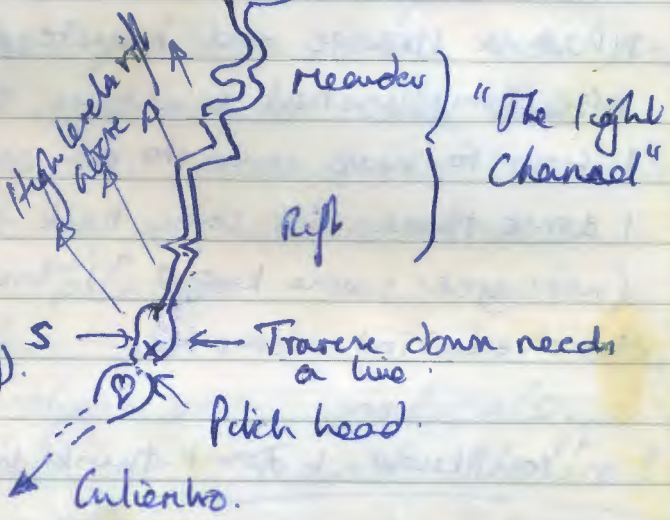 High levels in rift
above
Meander
"The light
Channel"
Rift
S
Traverse down needs
a line.
Pitch head.
Culiembro.